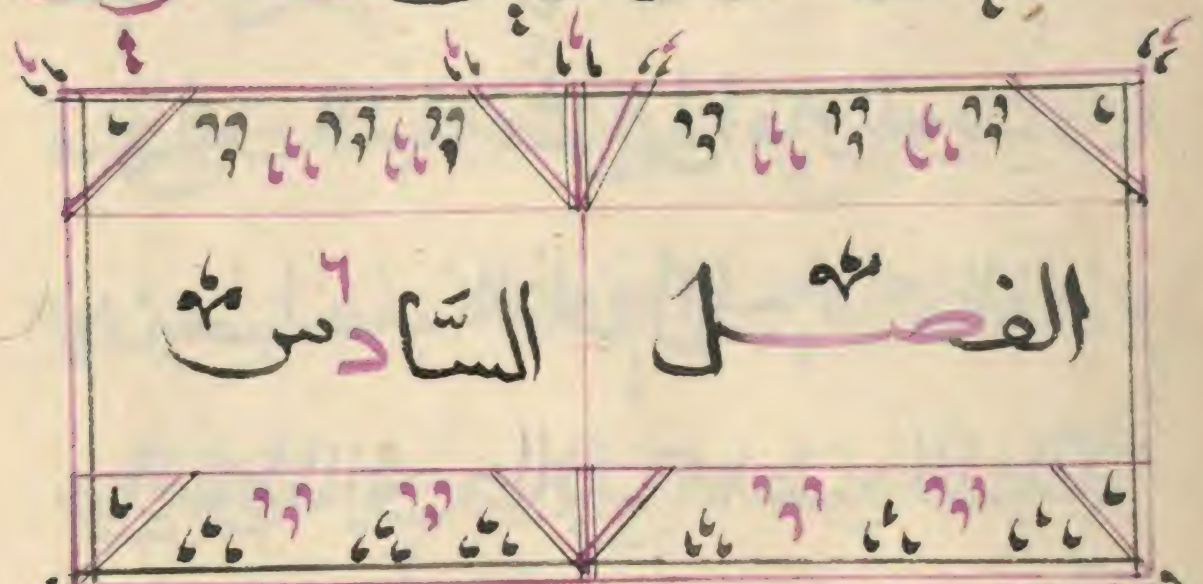 الفصل السَّادس ٦